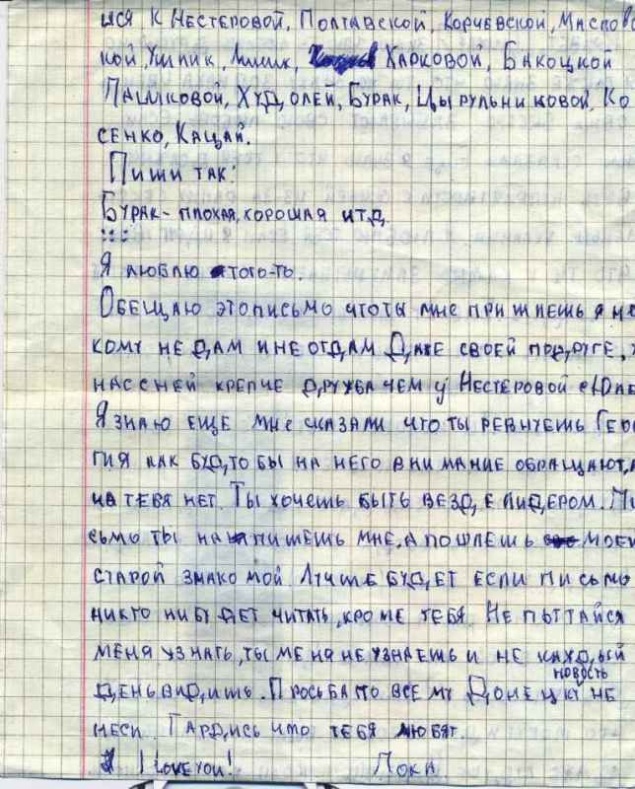 ися к Нестеровой, Полтавской, Корчевской, Маслов
кой Ушпик, Харковой, Бакоцкой
Пашковой, Худолей, Бурак, Цырульниковой, Ко
сенко, Кацай.
Пиши так:
Бурак - плохая, хорошая итд
:::
Я люблю того-то.
Обещаю это письмо что ты мне пришлешь я не
кому не дам и не отдам Даже своей подруге,
нас с ней крепче дружба чем у Нестеровой
Я знаю еще мне сказали что ты ревнуешь Геор
гия как будто бы на него внимание обращают, а
на тебя нет. Ты хочешь быть везде лидером. Пи
сьмо ты напишешь мне, а пошлешь моей
старой знакомой Лучше будет если письмо
никто нибудет читать, кроме тебя. Не пыттайся
меня узнать, ты меня не узнаешь и не каждый
день видишь. Просьба по всему Донецку новость не
неси. Гардись что тебя любят.
I love you! Пока